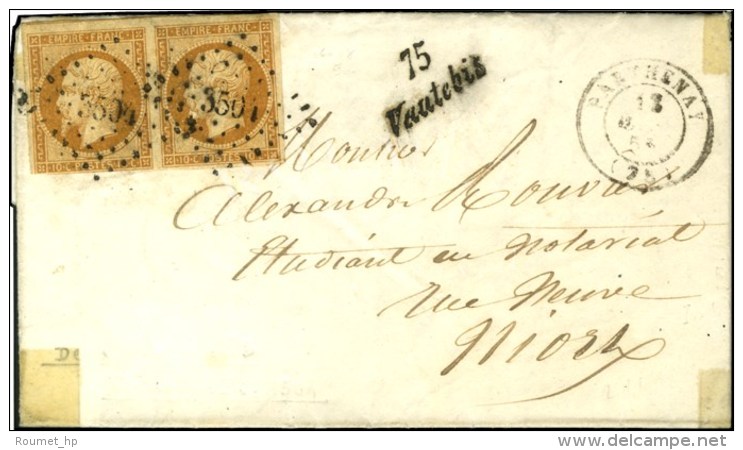 EMPIRE FRANC EMPIRE FRANC
3504 3504
10c POSTES 10c POSTES
75
Vautebis
PARTHENAY
12
(75)
Monsieur
Alexandre
Etudiant en Notariat
rue Neuve
Niort
Roumet_hp
www.delcampe.net